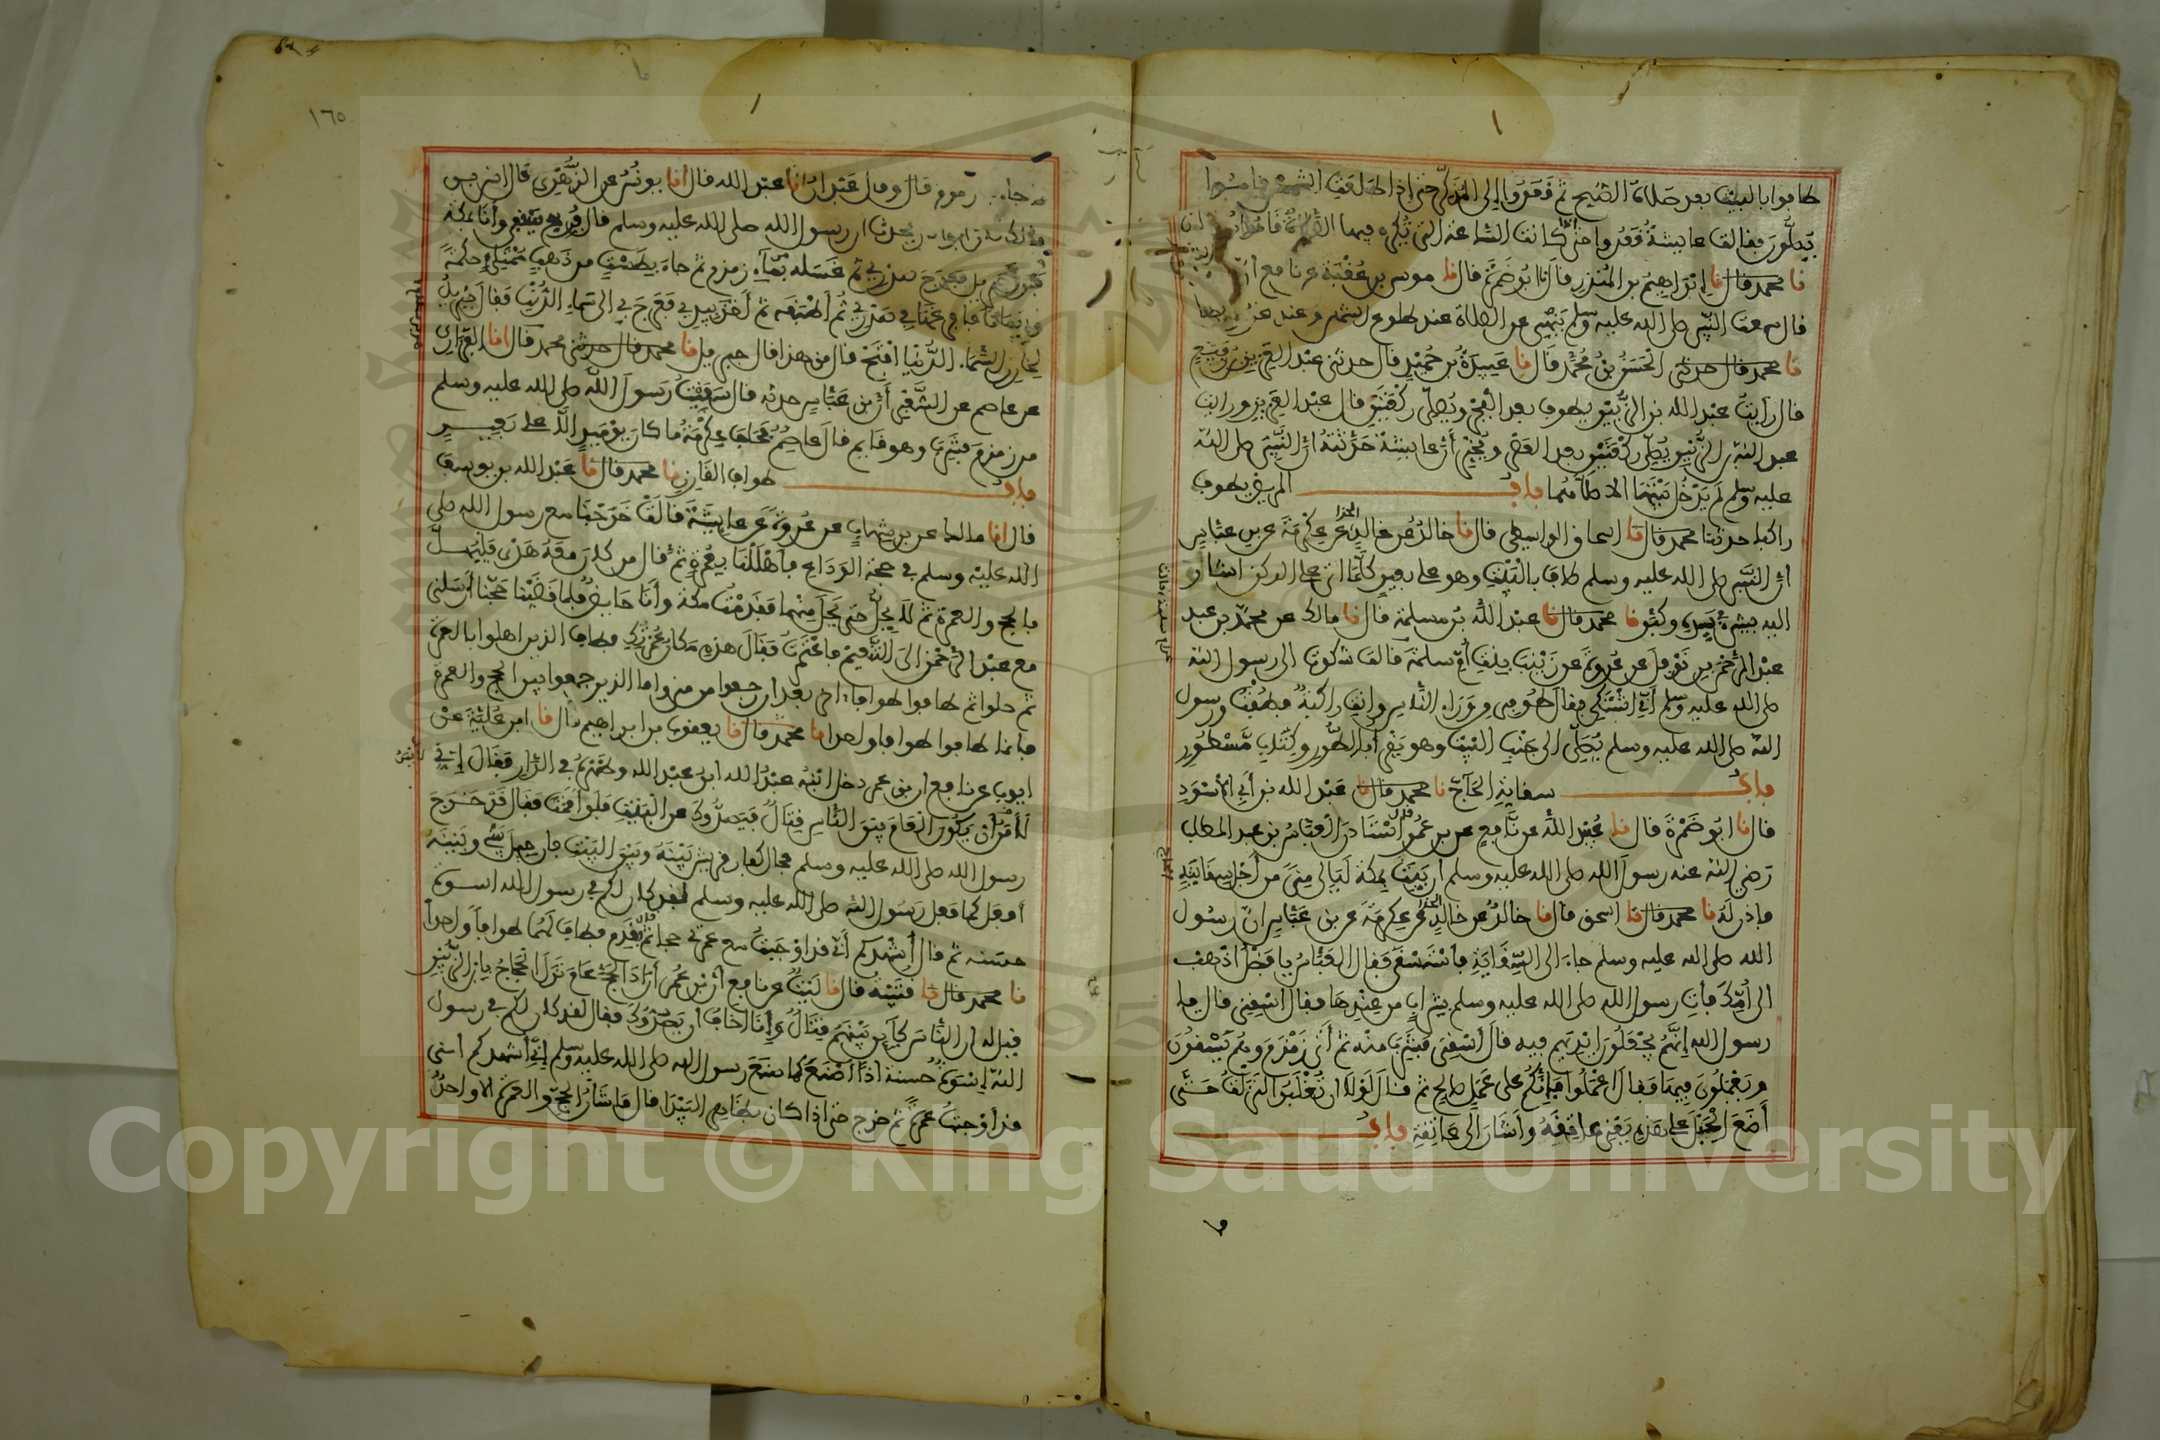 طافوا بالبيت بعد صلاة الصبح ثم قعدوا الى المذكر حتى اذا طلعت الشمس قاموا
يصلون فقالت عايشة قعدوا حتى كانت الساعة التي تكره فيها الصلاة قاموا يصلون
نا محمد قال نا ابراهيم بن المنذر قال نا ابو ضمرة قال نا موسى بن عقبة عن نافع ان
قال سمعت النبي صلى الله عليه وسلم ينهى عن الصلاة عند طلوع الشمس وعند غروبها
نا محمد قال حدثني الحسن بن محمد قال نا عبيدة بن حميد قال حدثني عبد العزيز بن رفيع
قال رايت عبد الله بن الزبير يطوف بعد الفجر ويصلي ركعتين قال عبد العزيز ورايت
عبد الله بن الزبير يصلي ركعتين بعد العصر ويخبر ان عايشة حدثته ان النبي صلى الله
عليه وسلم لم يدخل بيتها الا صلاهما باب المريض يطوف
راكبا حدثنا محمد قال نا اسحاق الواسطي قال نا خالد عن خالد الحذا عن عكرمة عن بن عباس
ان النبي صلى الله عليه وسلم طاف بالبيت وهو على بعير كلما اتى على الركن اشار
اليه بشيء في يده وكبر نا محمد قال نا عبد الله بن مسلمة قال نا مالك عن محمد بن عبد
عبد الرحمن بن نوفل عن عروة عن زينب بنت ام سلمة قالت شكوت الى رسول الله
صلى الله عليه وسلم اني اشتكي فقال طوفي من وراء الناس وانت راكبة فطفت ورسول
الله صلى الله عليه وسلم يصلي الى جنب البيت وهو يقرا بالطور وكتاب مسطور
باب سقاية الحاج نا محمد قال نا عبد الله بن ابي الاسود
قال نا ابو ضمرة قال نا عبيد الله عن نافع عن بن عمر قال استاذن العباس بن عبد المطلب
رضي الله عنه رسول الله صلى الله عليه وسلم ان يبيت بمكة ليالي منى من اجل سقايته
فاذن له نا محمد قال نا اسحق قال نا خالد عن خالد الحذا عن عكرمة عن بن عباس ان رسول
الله صلى الله عليه وسلم جاء الى السقاية فاستسقى فقال العباس يا فضل اذهب
الى امك فات رسول الله صلى الله عليه وسلم بشراب من عندها فقال اسقني قال يا
رسول الله انهم يجعلون ايديهم فيه قال اسقني فشرب منه ثم اتى زمزم وهم يسقون
ويعملون فيها فقال اعملوا فانكم على عمل صالح ثم قال لولا ان تغلبوا لنزلت حتى
اضع الحبل على هذه يعني عاتقه واشار الى عاتقه باب
١٦٥
ما جاء زمزم قال وقال عبدان انا عبد الله قال انا يونس عن الزهري قال انس بن
مالك كان ابو ذر يحدث ان رسول الله صلى الله عليه وسلم قال فرج سقفي وانا بمكة
فنزل جبريل ففرج صدري ثم غسله بماء زمزم ثم جاء بطست من ذهب ممتلئ حكمة
وايمانا فافرغها في صدري ثم اطبقه ثم اخذ بيدي فعرج بي الى السماء الدنيا فقال جبريل
لخازن السماء الدنيا افتح قال من هذا قال جبريل نا محمد قال حدثني محمد قال انا الفزاري
عن عاصم عن الشعبي ان بن عباس حدثه قال سقيت رسول الله صلى الله عليه وسلم
من زمزم فشرب وهو قايم قال عاصم فحلف عكرمة ما كان يومئذ الا على بعير
باب طواف القارن نا محمد قال نا عبد الله بن يوسف
قال انا مالك عن بن شهاب عن عروة عن عايشة قالت خرجنا مع رسول الله صلى
الله عليه وسلم في حجة الوداع فاهللنا بعمرة ثم قال من كان معه هدي فليهل
بالحج والعمرة ثم لا يحل حتى يحل منهما فقدمت مكة وانا حايض فلما قضينا حجنا ارسلني
مع عبد الرحمن الى التنعيم فاعتمرت فقال هذه مكان عمرتك فطاف الذين اهلوا بالعمرة
ثم حلوا ثم طافوا طوافا اخر بعد ان رجعوا من منى واما الذين جمعوا بين الحج والعمرة
فانما طافوا طوافا واحدا نا محمد قال نا يعقوب بن ابراهيم قال نا ابن علية عن
ايوب عن نافع ان بن عمر دخل ابنه عبد الله ابن عبد الله وظهره في الدار فقال اني
لا امن ان يكون العام بين الناس قتال فيصدوك عن البيت فلو اقمت فقال قد خرج
رسول الله صلى الله عليه وسلم فحال كفار قريش بينه وبين البيت فان حيل بيني وبينه
افعل كما فعل رسول الله صلى الله عليه وسلم لقد كان لكم في رسول الله اسوة
حسنة ثم قال اشهدكم اني قد اوجبت مع عمرتي حجا ثم قدم فطاف لهما طوافا واحدا
نا محمد قال نا قتيبة قال نا الليث عن نافع ان بن عمر اراد الحج عام نزل الحجاج بابن الزبير
فقيل له ان الناس كاين بينهم قتال وانا نخاف ان يصدوك فقال لقد كان لكم في رسول
الله اسوة حسنة اذا اصنع كما صنع رسول الله صلى الله عليه وسلم اني اشهدكم انني
قد اوجبت عمرة ثم خرج حتى اذا كان بظاهر البيداء قال ما شان الحج والعمرة الا واحد
Copyright © King Saud University